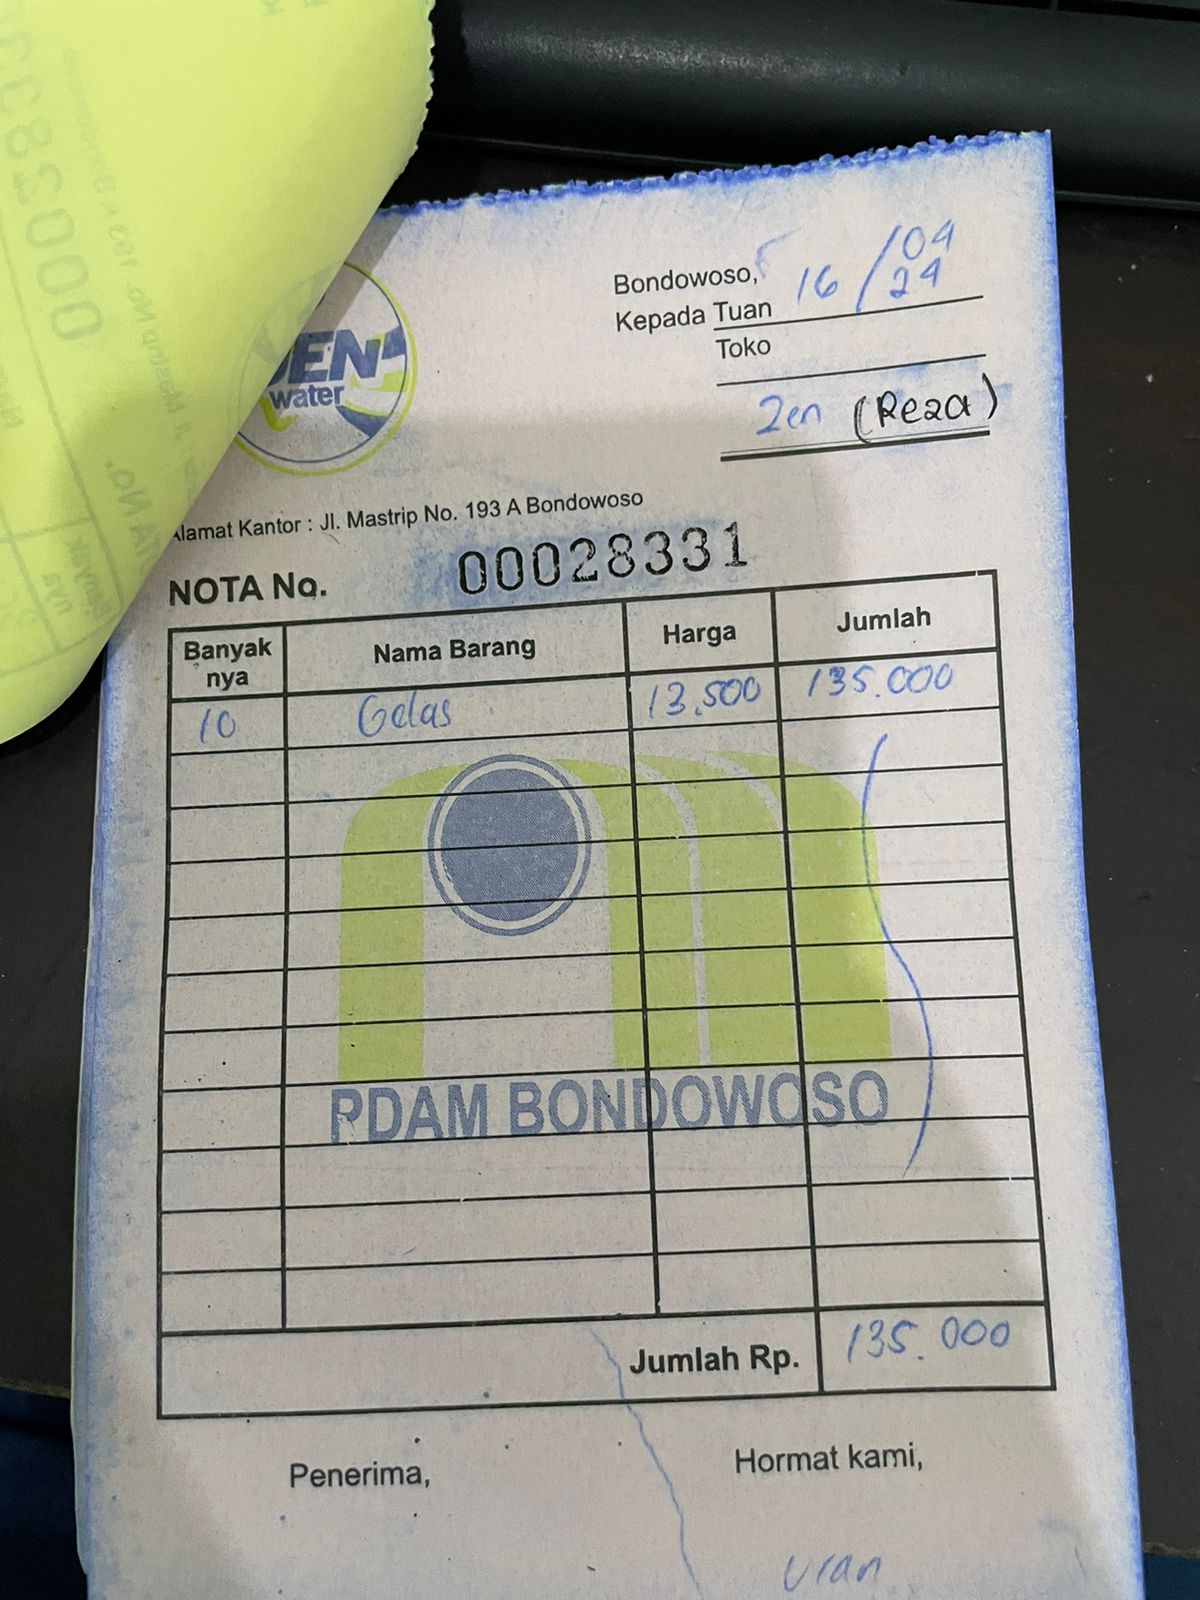 Bondowoso, 16/04
24
Kepada Tuan
Toko
Zen (Reza)
water
Alamat Kantor : Jl. Mastrip No. 193 A Bondowoso
NOTA No. 00028331
Banyak nya Nama Barang Harga Jumlah
10 Gelas 13.500 135.000
PDAM BONDOWOSO
Jumlah Rp. 135.000
Penerima, Hormat kami,